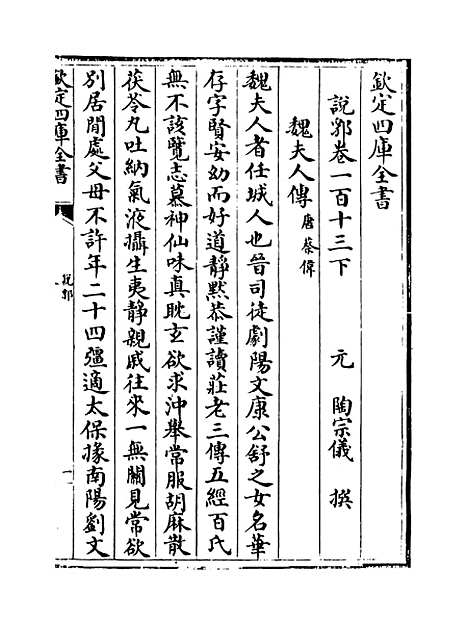 欽定四庫全書
說郛卷一百十三下
元 陶宗儀 撰
魏夫人傳 唐蔡偉
魏夫人者任城人也晉司徒劇陽文康公舒之女名華
存字賢安幼而好道靜默恭謹讀莊老三傳五經百氏
無不該覽志慕神仙味真耽玄欲求沖舉常服胡麻散
茯苓丸吐納氣液攝生夷靜親戚往來一無關見常欲
別居閒處父母不許年二十四彊適太保掾南陽劉文
欽定四庫全書
說郛
一